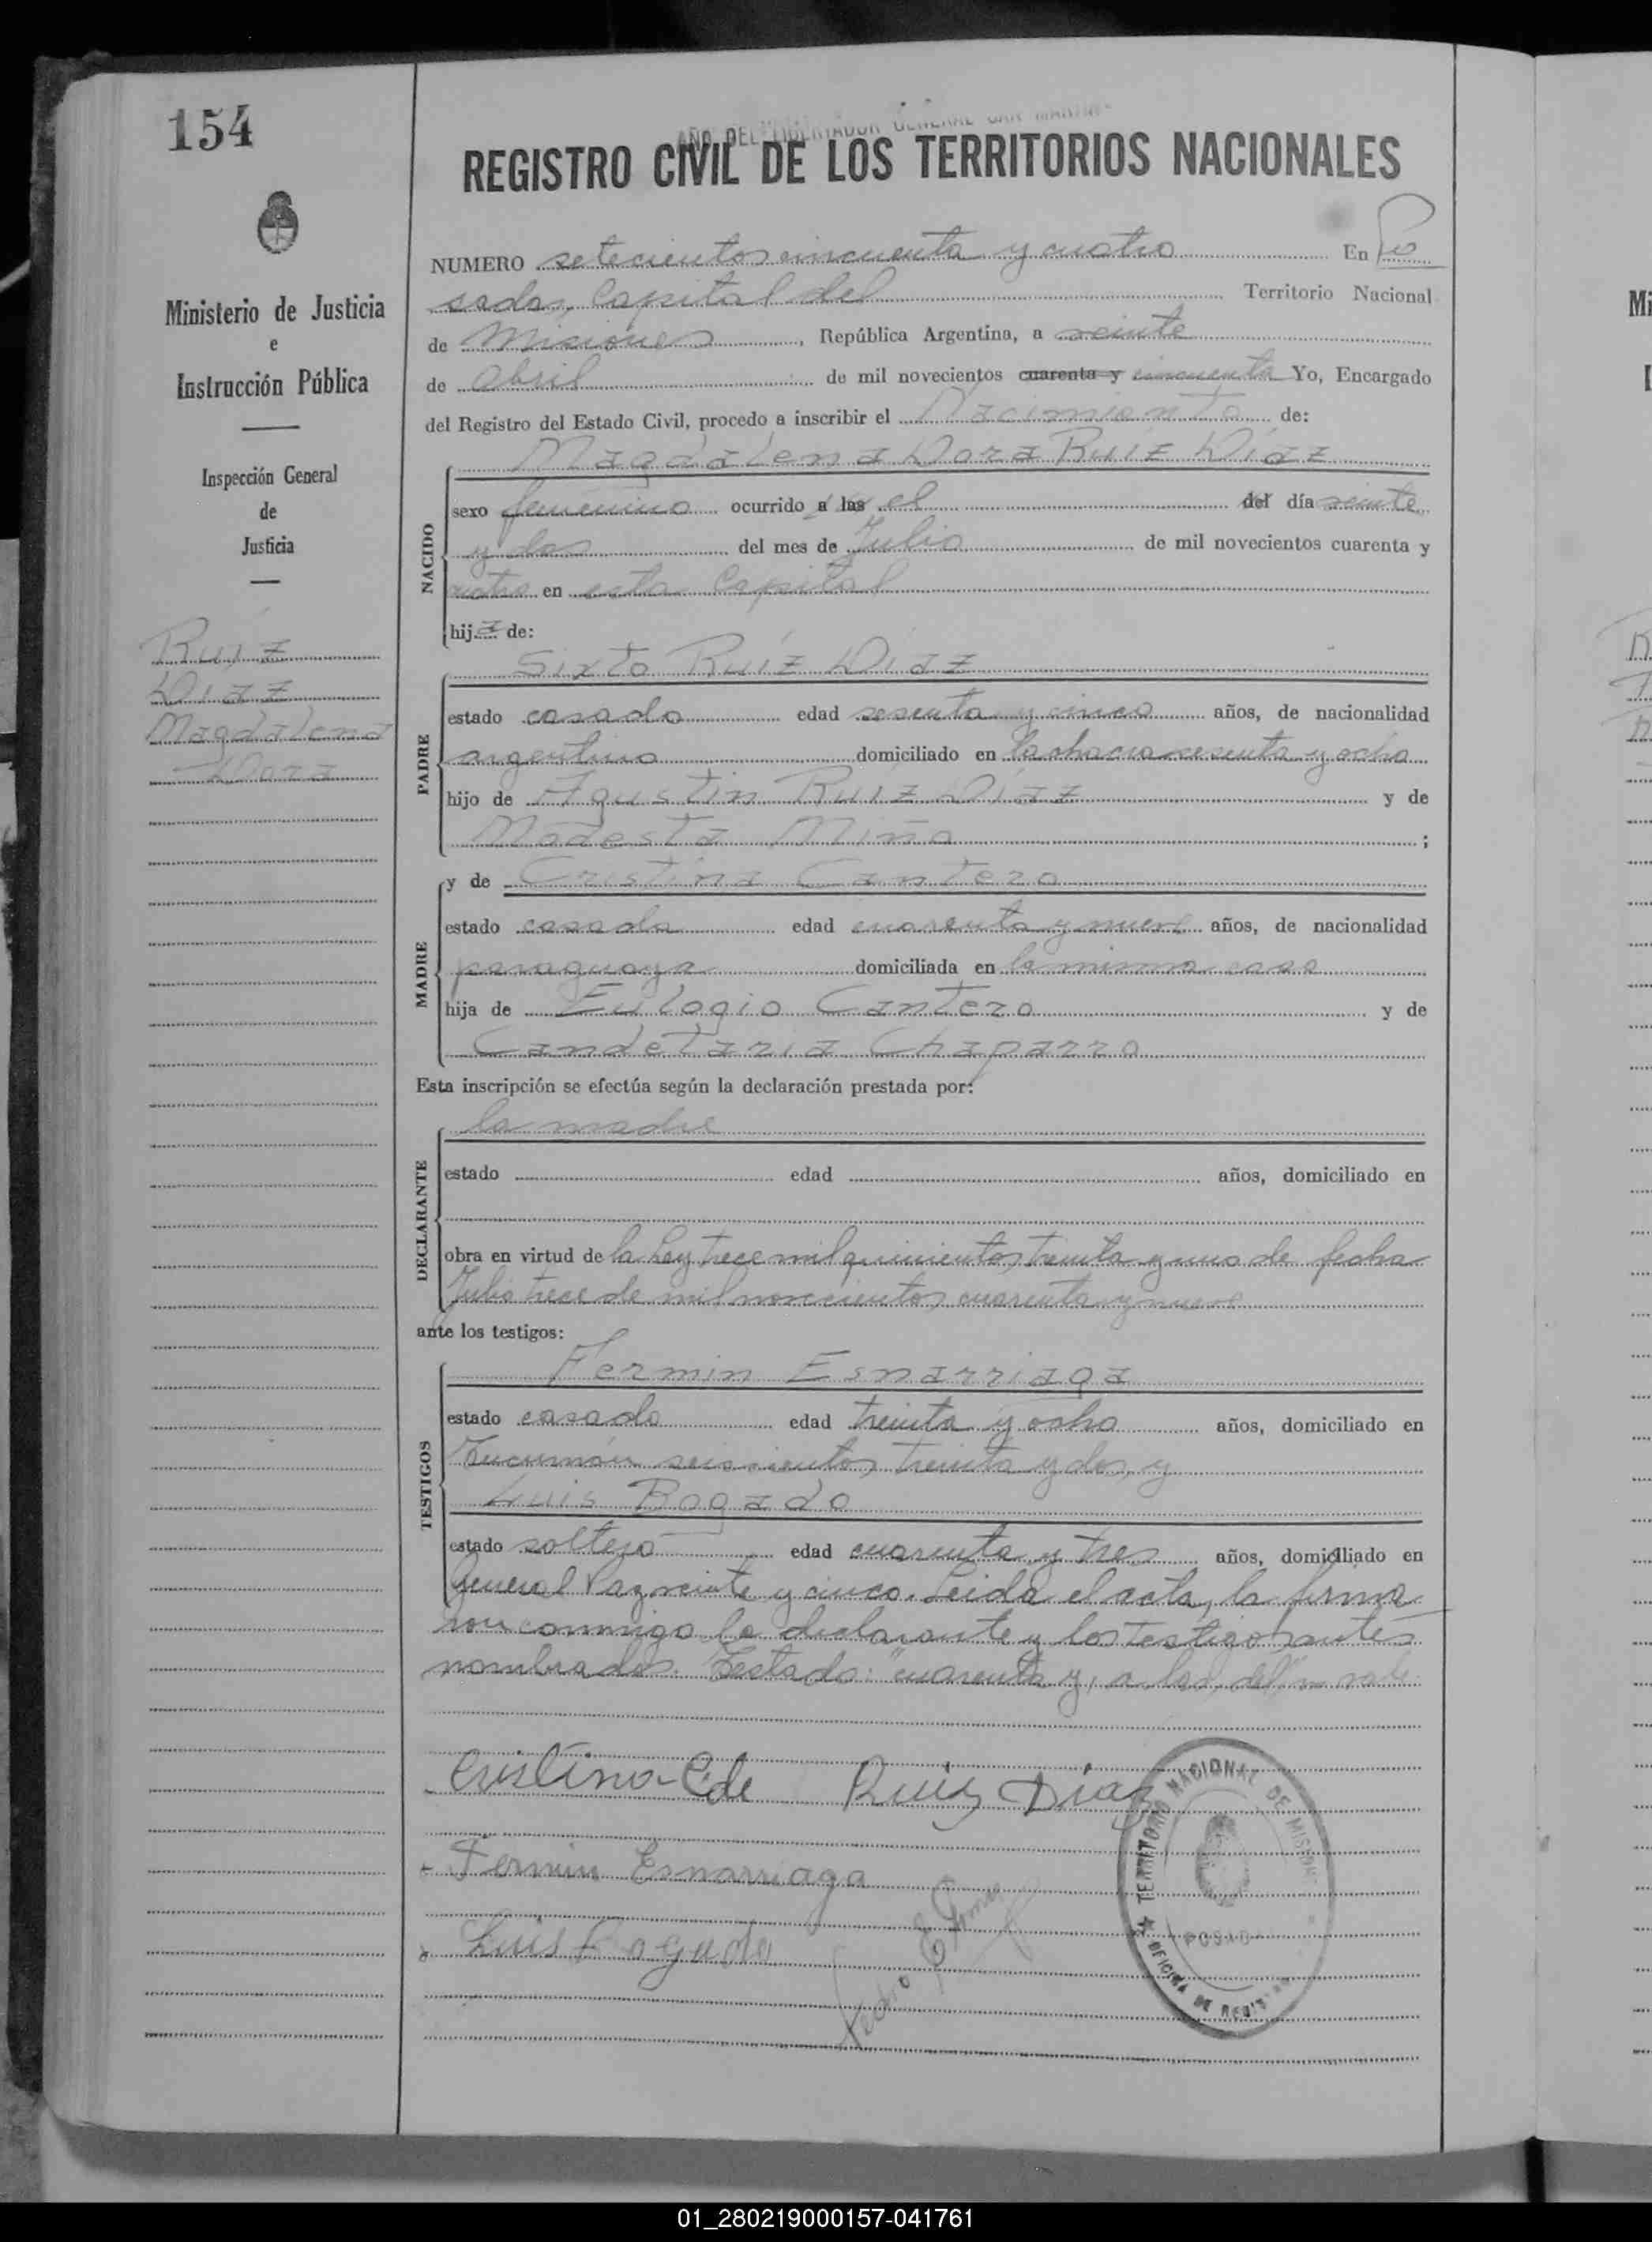 154
AÑO DEL LIBERTADOR GENERAL SAN MARTIN
REGISTRO CIVIL DE LOS TERRITORIOS NACIONALES
Ministerio de Justicia
e
Instrucción Pública
Inspección General
de
Justicia
Ruiz
Diaz
Magdalena
Dora
NUMERO setecientos cincuenta y cuatro En Po
sadas, Capital del Territorio Nacional
de Misiones, República Argentina, a veinte
de Abril de mil novecientos cuarenta y cincuenta Yo, Encargado
del Registro del Estado Civil, procedo a inscribir el Nacimiento de:
Magdalena Dora Ruiz Díaz
NACIDO
sexo femenino ocurrido a las el del día veinte
y dos del mes de Julio de mil novecientos cuarenta y
cuatro en esta Capital
hija de:
Sixto Ruíz Diaz
PADRE
estado casado edad sesenta y cinco años, de nacionalidad
argentino domiciliado en la chacra sesenta y ocho
hijo de Agustin Ruiz Díaz y de
Modesta Miño ;
MADRE
y de Cristina Cantero
estado casada edad cuarenta y nueve años, de nacionalidad
paraguaya domiciliada en la misma casa
hija de Eulogio Cantero y de
Candelaria Chaparro
Esta inscripción se efectúa según la declaración prestada por:
DECLARANTE
la madre
estado edad años, domiciliado en
obra en virtud de la Ley trece mil quinientos treinta y uno de fecha
Julio trece de mil novecientos cuarenta y nueve
ante los testigos:
TESTIGOS
Fermin Esnarriaga
estado casado edad treinta y ocho años, domiciliado en
Tucumán seiscientos treinta y dos, y
Luis Bogado
estado soltero edad cuarenta y tres años, domiciliado en
General Paz veinte y cinco. Leida el acta, la firma
ron conmigo la declarante y los testigos antes
nombrados. Testado: "cuarenta y, a las, del" no vale
Cristina C. de Ruiz Díaz
Fermin Esnarriaga
Luis Bogado
Pedro
TERRITORIO NACIONAL DE MISIONES
POSADAS
OFICINA DE REGISTRO
01_280219000157-041761